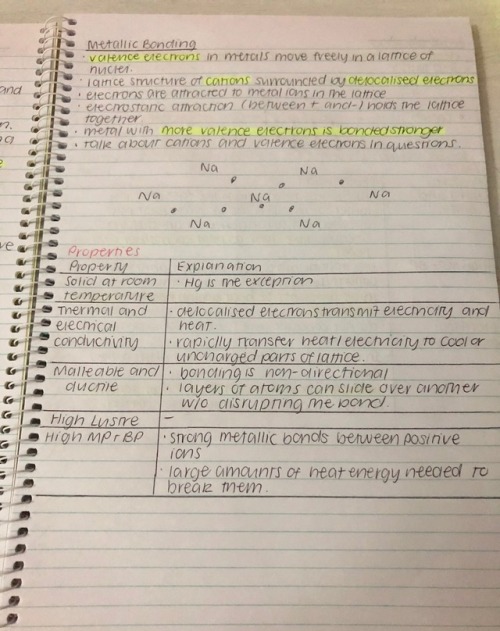 Metallic Bonding
· valence electrons in metals move freely in a lattice of
nuclei.
· lattice structure of cations surrounded by delocalised electrons
· electrons are attracted to metal ions in the lattice
· electrostatic attraction (between + and -) holds the lattice
together
· metal with more valence electrons is bonded stronger
· talk about cations and valence electrons in questions.
Na Na
Na Na Na
Na Na
Properties
Property Explanation
Solid at room · Hg is the exception
temperature
Thermal and · delocalised electrons transmit electricity and
electrical heat.
conductivity · rapidly transfer heat/electricity to cool or
uncharged parts of lattice.
Malleable and · bonding is non-directional
ductile · layers of atoms can slide over another
w/o disrupting the bond.
High Lustre –
High MP+BP · strong metallic bonds between positive
ions
· large amounts of heat energy needed to
break them.
and
n.
ve